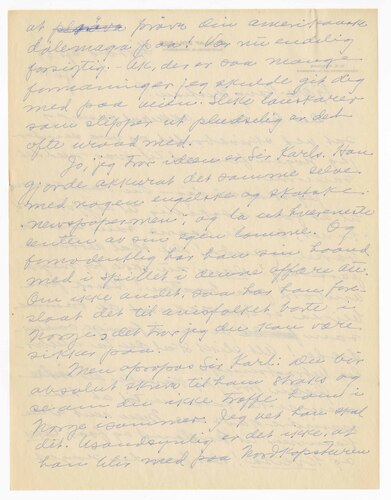 at prøve din amerikanske
dalemaga paa! Vær nu endelig
forsigtig. - Ak, der er saa mange
formaninger jeg skulde git dig
med paa veien. Slike
som slipper ut pludselig er det
ofte uraad med.
Jo, jeg tror ideen er Sir Karls. Han
gjorde akkurat det samme selv
med nogen engelske og skotske
"newspapermen" og la ut
enten av sin egen lomme. Og
formodentlig har han sin haand
med i spillet i denne affære au.
Om ikke andet, saa har han fore-
slaat det til avisfolket borte i
Norge, det tror jeg du kan være
sikker paa.
Men apropos Sir Karl: Du bør
absolut skrive til ham straks og
se om du ikke træffe ham i
Norge isommer. Jeg vet han skal
dit. Usandsynlig er det ikke, at
han blir med paa Nordkapsturen